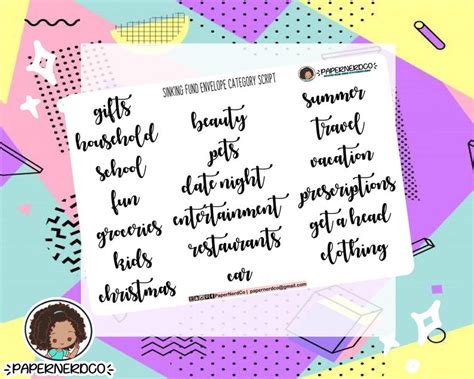 SINKING FUND ENVELOPE CATEGORY SCRIPT
PAPERNERDCO
gifts
household
school
fun
groceries
kids
christmas
beauty
pets
date night
entertainment
restaurants
car
summer
travel
vacation
prescriptions
get a head
clothing
PaperNerdCo | papernerdco@gmail.com
PAPERNERDCO